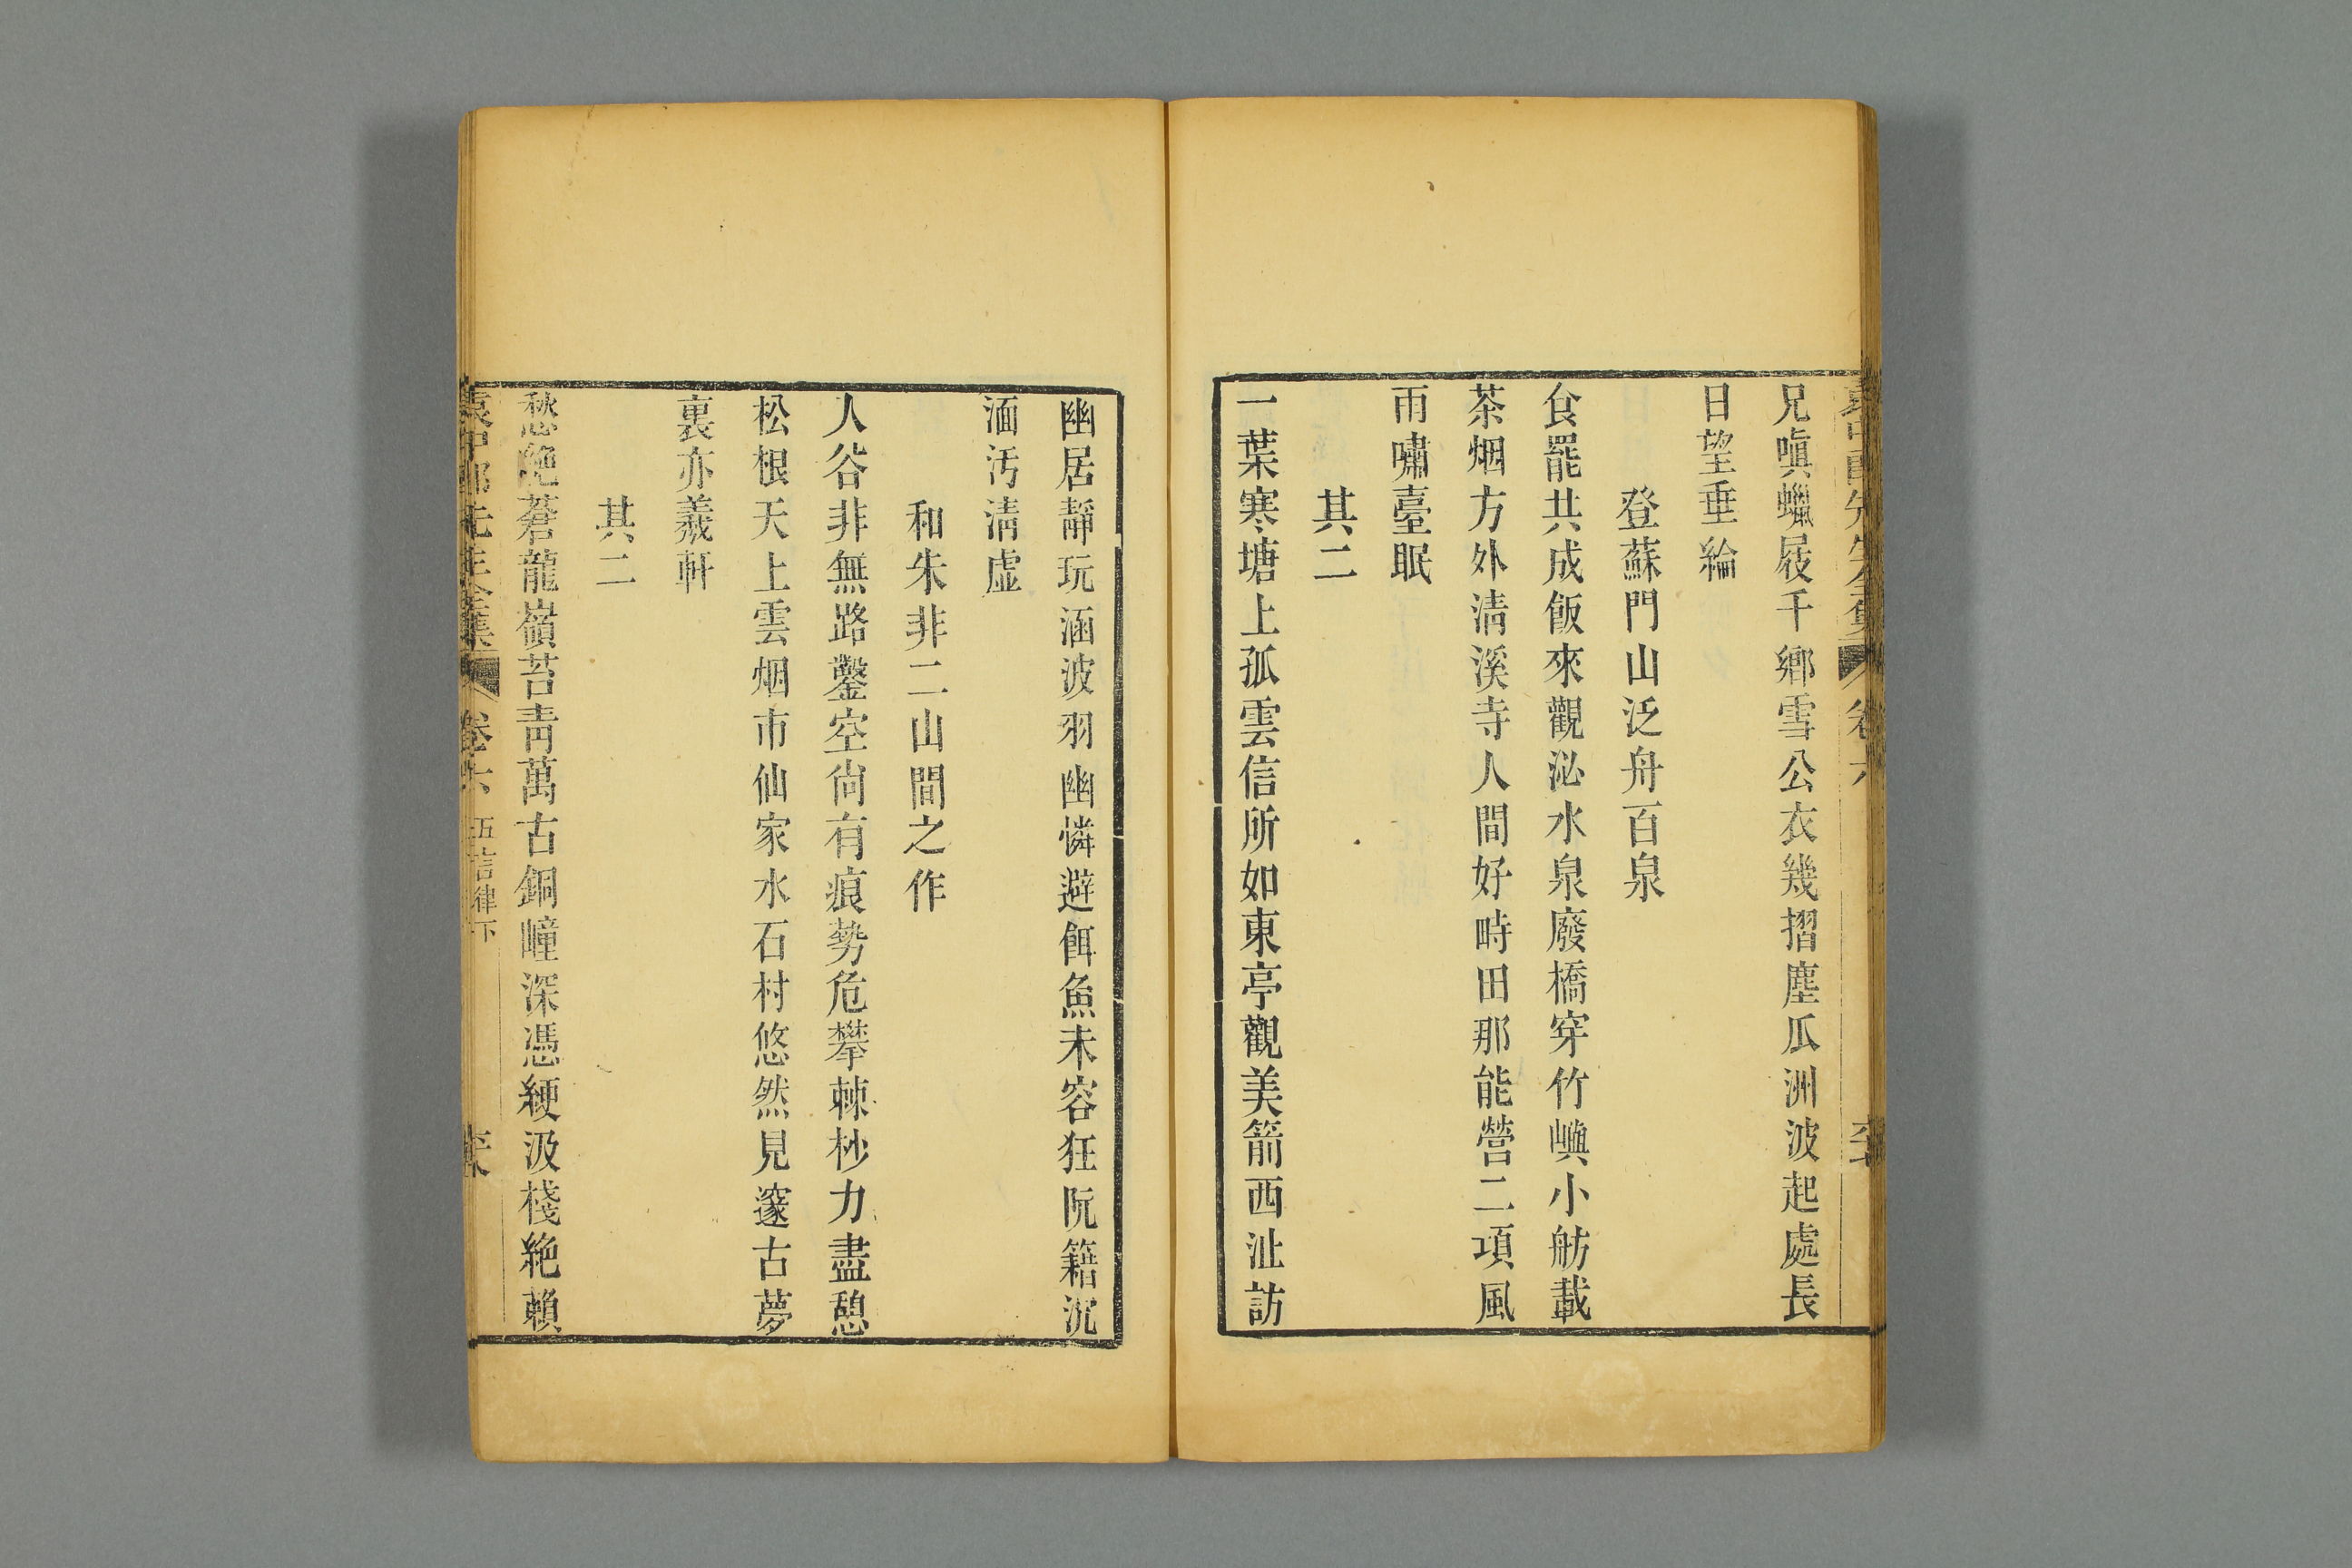 兄嗔蠟屐千鄉雪公衣幾摺塵瓜洲波起處長
日望垂綸
登蘇門山泛舟百泉
食罷共成飯來觀泌水泉廢橋穿竹嶼小舫載
茶烟方外清溪寺人間好畤田那能營二項風
雨嘯臺眠
其二
一葉寒塘上孤雲信所如東亭觀美箭西沚訪
幽居靜玩涵波羽幽憐避餌魚未容狂阮籍沉
湎汚清虛
和朱非二山間之作
人谷非無路鑿空尙有痕勢危攀棘杪力盡憩
松根天上雲烟市仙家水石村悠然見邃古夢
裏亦羲軒
其二
愁絶蒼龍嶺苔靑萬古銅㠉深憑綆汲棧絶賴
袁中郎先生全集 卷六 五言律下